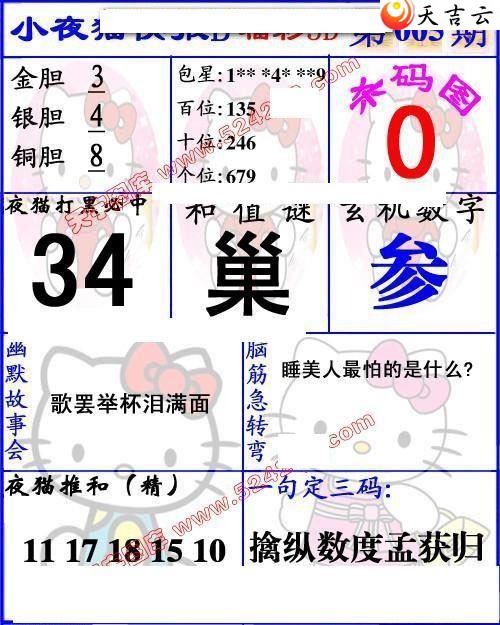 天吉云
小夜猫快报D 福彩3D 第005期
金胆 3
银胆 4
铜胆 8
包星:1** *4* **9
百位:135
十位:246
个位:679
杀码图
0
夜猫打黑必中
34
和值谜
巢
玄机数字
参
幽默故事会
歌罢举杯泪满面
脑筋急转弯
睡美人最怕的是什么?
夜猫推和(精)
11 17 18 15 10
一句定三码:
擒纵数度孟获归